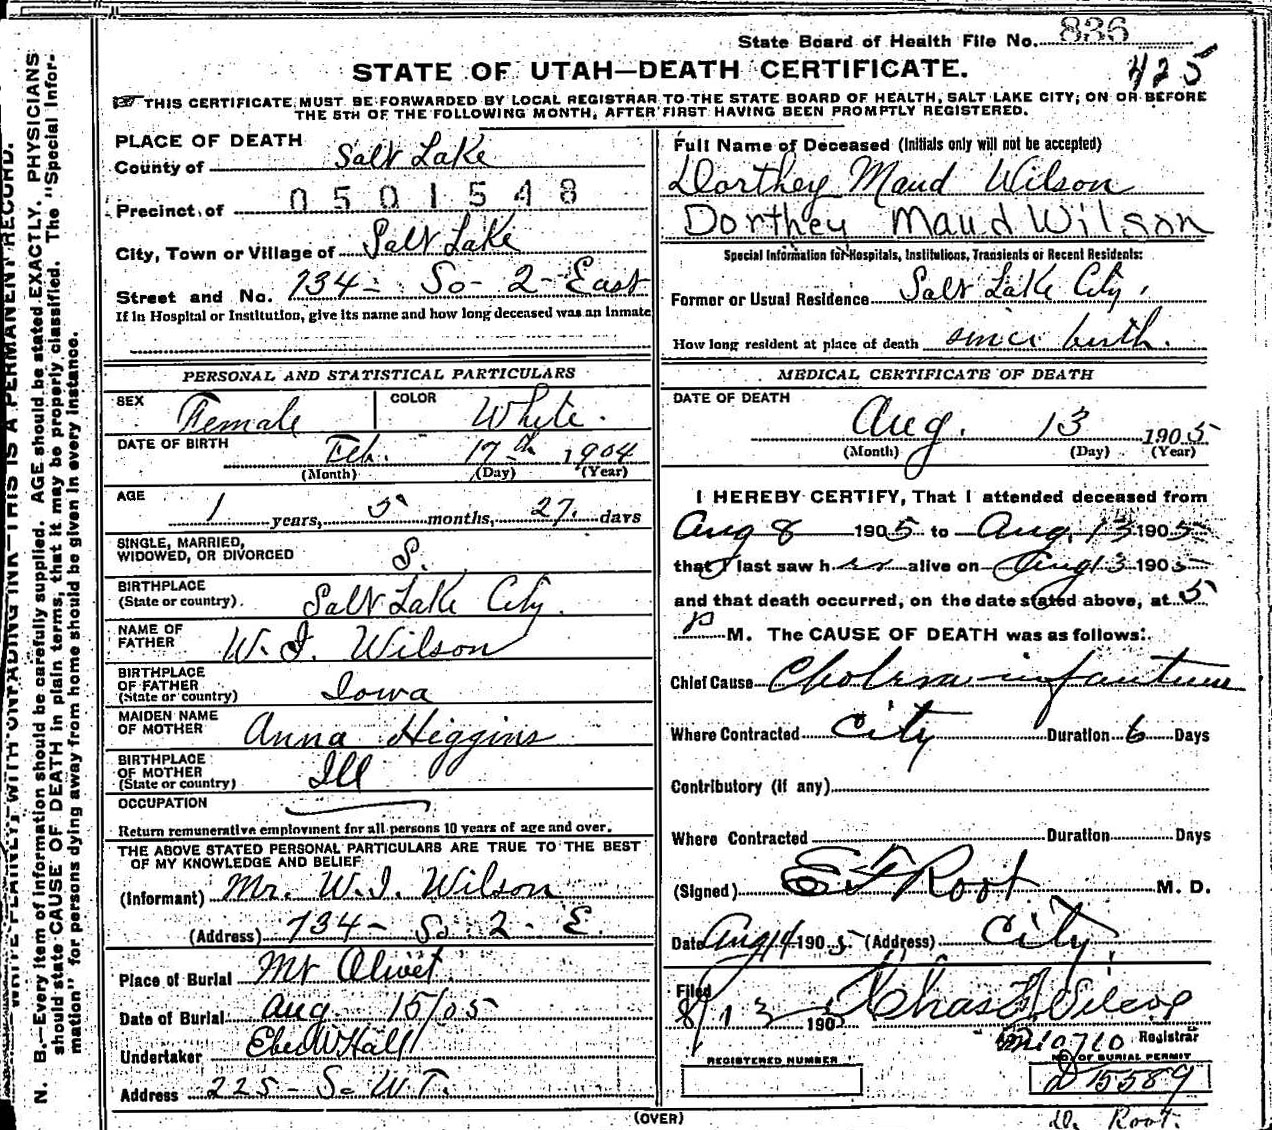 State Board of Health File No. 836
425
STATE OF UTAH—DEATH CERTIFICATE.
☞ THIS CERTIFICATE MUST BE FORWARDED BY LOCAL REGISTRAR TO THE STATE BOARD OF HEALTH, SALT LAKE CITY, ON OR BEFORE
THE 5TH OF THE FOLLOWING MONTH, AFTER FIRST HAVING BEEN PROMPTLY REGISTERED.
PLACE OF DEATH
County of Salt Lake
0501548
Precinct of
City, Town or Village of Salt Lake
Street and No. 734- So- 2- East
If in Hospital or Institution, give its name and how long deceased was an inmate
PERSONAL AND STATISTICAL PARTICULARS
SEX Female COLOR White.
DATE OF BIRTH Feb. 17th 1904
(Month) (Day) (Year)
AGE 1 years, 5 months, 27. days
SINGLE, MARRIED,
WIDOWED, OR DIVORCED S.
BIRTHPLACE
(State or country). Salt Lake City.
NAME OF
FATHER W. I. Wilson
BIRTHPLACE
OF FATHER
(State or country) Iowa
MAIDEN NAME
OF MOTHER Anna Higgins
BIRTHPLACE
OF MOTHER
(State or country) Ill
OCCUPATION
Return remunerative employment for all persons 10 years of age and over.
THE ABOVE STATED PERSONAL PARTICULARS ARE TRUE TO THE BEST
OF MY KNOWLEDGE AND BELIEF
(Informant) Mr. W. I. Wilson
(Address) 734- So. 2- E.
Place of Burial Mt Olivet
Date of Burial Aug 15/05
Undertaker Eber W Hall
Address 225- S. W. T.
Full Name of Deceased (Initials only will not be accepted)
Dorthey Maud Wilson
Dorthey Maud Wilson
Special Information for Hospitals, Institutions, Transients or Recent Residents:
Former or Usual Residence Salt Lake City.
How long resident at place of death since birth.
MEDICAL CERTIFICATE OF DEATH
DATE OF DEATH
Aug. 13 1905
(Month) (Day) (Year)
I HEREBY CERTIFY, That I attended deceased from
Aug 8 1905 to Aug. 13 1905
that I last saw her alive on Aug 13 1905
and that death occurred, on the date stated above, at 5
P M. The CAUSE OF DEATH was as follows:
Chief Cause Cholera infantum
Where Contracted City Duration 6 Days
Contributory (if any)
Where Contracted Duration Days
(Signed) Root M. D.
Date Aug 14 1905 (Address) City
Filed
8/13 1905 Chas
Registrar
10710
REGISTERED NUMBER
NO. OF BURIAL PERMIT
D 15589
(OVER)
Dr. Root.
N. B.—Every item of information should be carefully supplied. AGE should be stated EXACTLY. PHYSICIANS
should state CAUSE OF DEATH in plain terms, that it may be properly classified. The "Special Infor-
mation" for persons dying away from home should be given in every instance.
WRITE PLAINLY WITH UNFADING INK—THIS IS A PERMANENT RECORD.